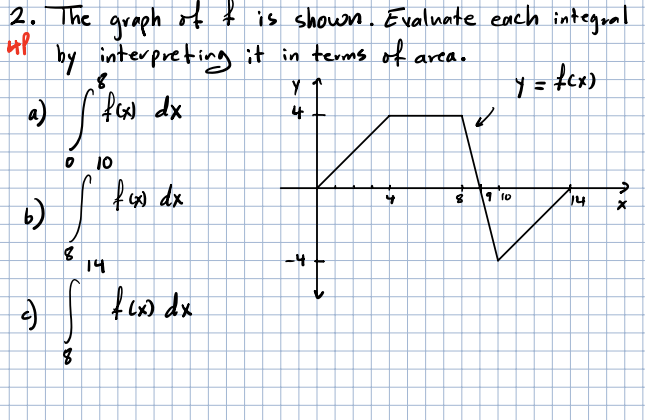 2. The graph of f is shown. Evaluate each integral
4P
by interpreting it in terms of area.
a) ∫₀⁸ f(x) dx
b) ∫₈¹⁰ f(x) dx
c) ∫₈¹⁴ f(x) dx
y = f(x)
y
4
4 8 9 10 14
x
-4